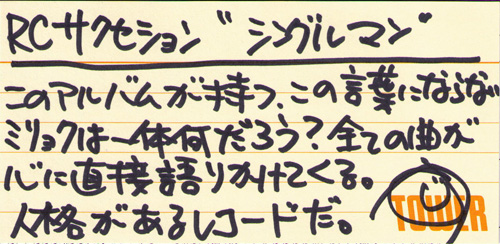 RCサクセション"シングルマン"
このアルバムが持つ、この言葉にならない
ミリョクは一体何だろう?全ての曲が
心に直接語りかけてくる。
人格があるレコードだ。
TOWER